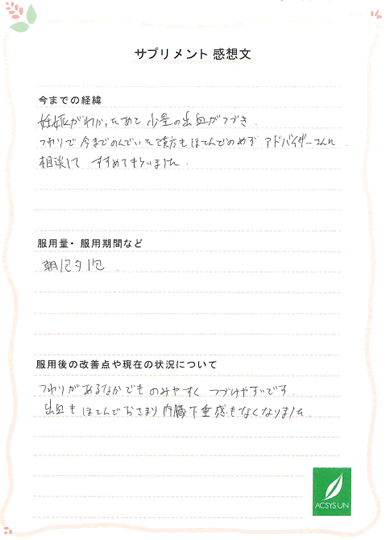 サプリメント 感想文
今までの経緯
妊娠がわかったあと 少量の出血がつづき、
つわりで 今までのんでいた漢方もほとんどのめず アドバイザーさんに
相談して すすめてもらいました
服用量・服用期間など
朝1包夕1包
服用後の改善点や現在の状況について
つわりがあるなかでも のみやすく つづけやすいです。
出血も ほとんどおさまり 内臓下垂感もなくなりました。
ACSYS UN